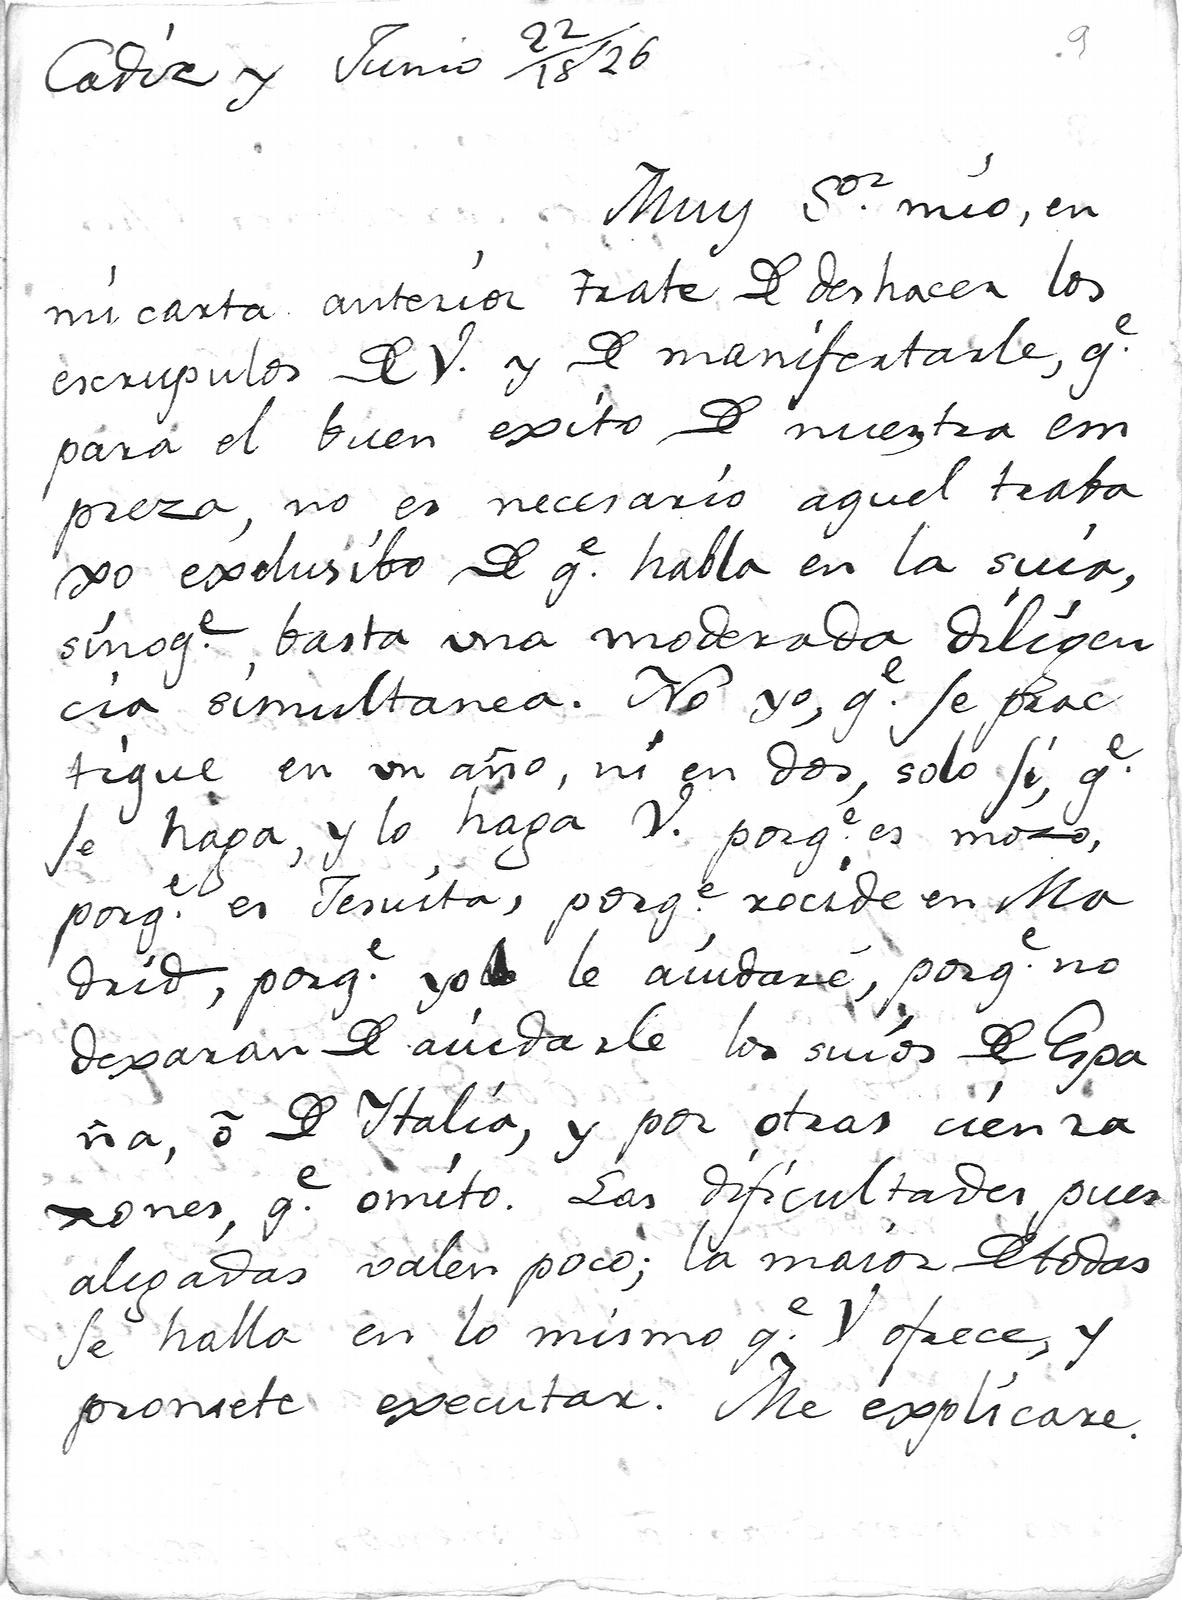 Cadiz y Junio 22/18/26
9
Muy S.or mio, en
mi carta anterior trate de deshacer los
escrupulos de V. y de manifestarle, q.e
para el buen exito de nuestra em
preza, no es necesario aquel traba
xo exclusibo de q.e habla en la suia,
sinoq.e basta una moderada diligen
cia simultanea. No yo, q.e se prac
tique en un año, ni en dos, solo si, q.e
se haga, y lo haga V. porq.e es mozo,
porq.e es Jesuita, porq.e recide en Ma
drid, porq.e yo le aiudaré, porq.e no
dexaran de aiudarle los suios de Espa
ña, õ de Italia, y por otras cien ra
zones, q.e omito. Las dificultades, pues
aligadas valen poco; la maior de todas
se halla en lo mismo q.e V ofrece, y
promete executar. Me explicare.